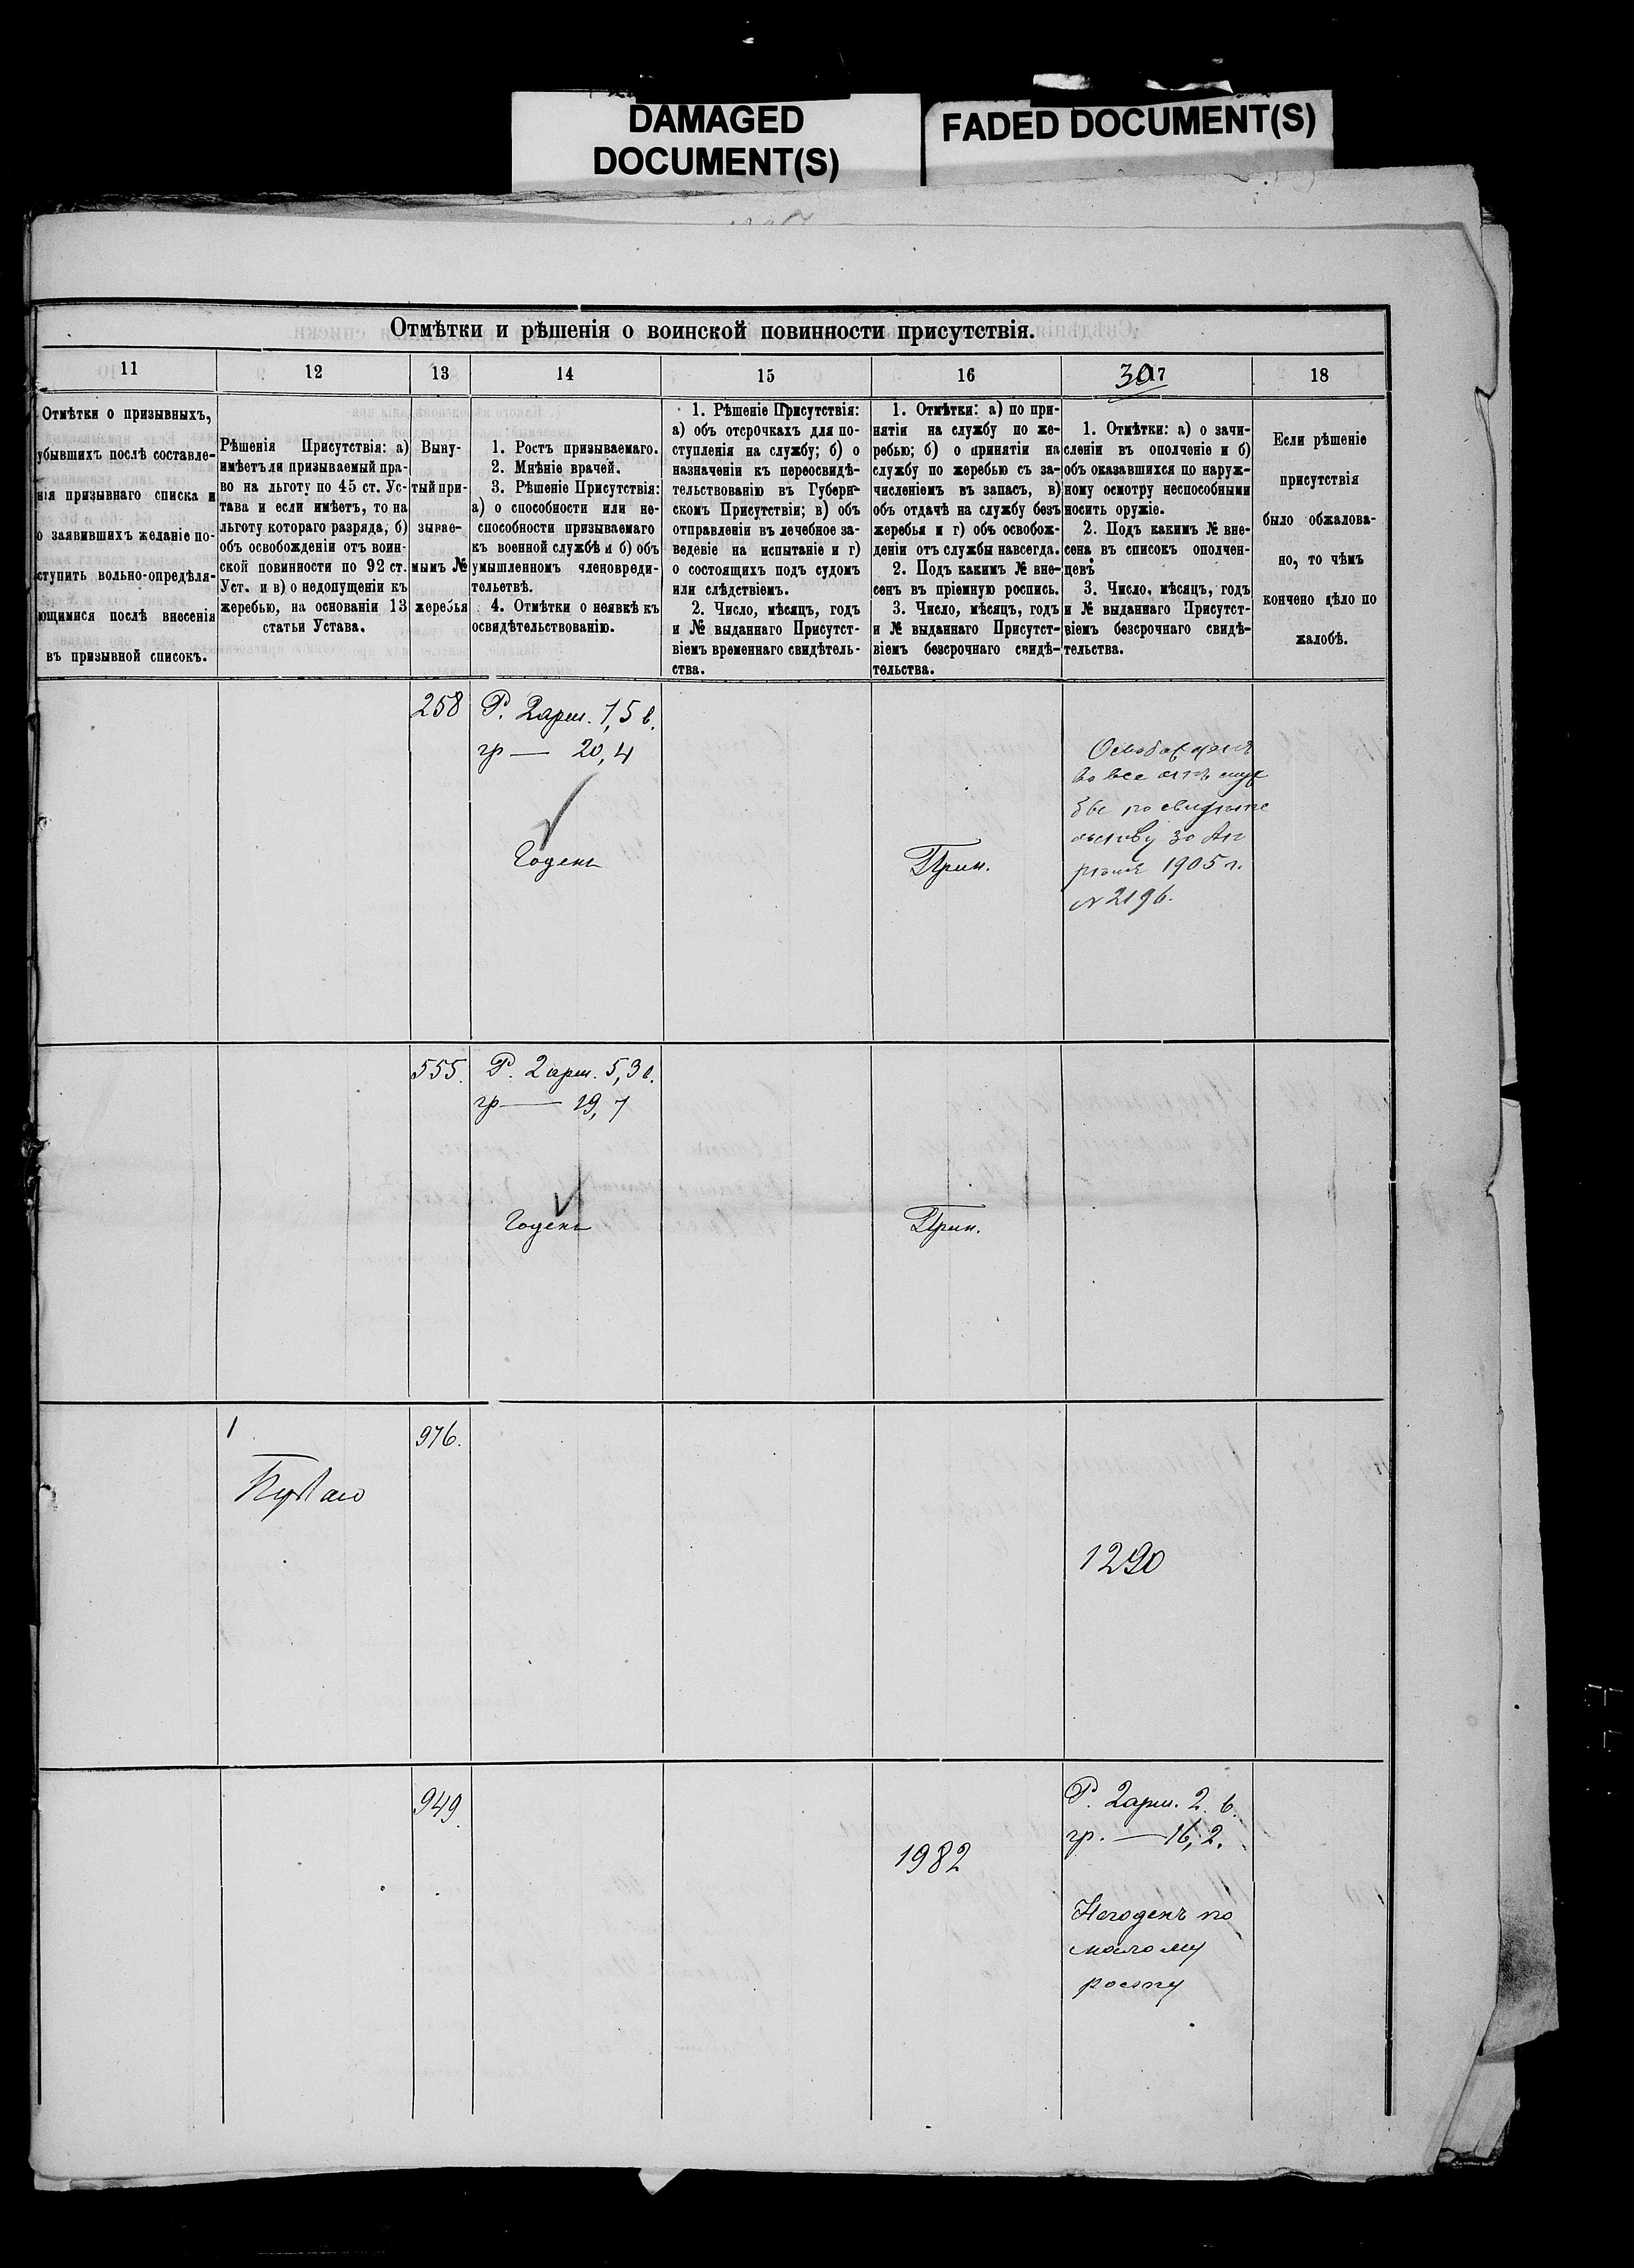 DAMAGED
DOCUMENT(S)
FADED DOCUMENT(S)
Отмѣтки и рѣшенія о воинской повинности присутствія.
11
12
13
14
15
16
30
17
18
Отмѣтки о призывныхъ,
убывшихъ послѣ составле-
нія призывнаго списка и
о заявившихъ желаніе по-
ступить вольно-опредѣля-
ющимися послѣ внесенія
въ призывной списокъ.
Рѣшенія Присутствія: а)
имѣетъ ли призываемый пра-
во на льготу по 45 ст. Ус-
тава и если имѣетъ, то на
льготу котораго разряда, б)
объ освобожденіи отъ воин-
ской повинности по 92 ст.
Уст. и в) о недопущеніи къ
жеребью, на основаніи 13
статьи Устава.
Выну-
тый при-
зывае-
мымъ №
жеребья
1. Ростъ призываемаго.
2. Мнѣніе врачей.
3. Рѣшеніе Присутствія:
а) о способности или не-
способности призываемаго
къ военной службѣ и б) объ
умышленномъ членовреди-
тельетвѣ.
4. Отмѣтки о неявкѣ къ
освидѣтельствованію.
1. Рѣшеніе Присутствія:
а) объ отсрочкахъ для по-
ступленія на службу; б) о
назначеніи къ переосвидѣ-
тельствованію въ Губерн-
скомъ Присутствіи; в) объ
отправленіи въ лечебное за-
ведевіе на испытаніе и г)
о состоящихъ подъ судомъ
или слѣдствіемъ.
2. Число, мѣсяцъ, годъ
и № выданнаго Присутст-
віемъ временнаго свидѣтель-
ства.
1. Отмѣтки: а) по при-
нятіи на службу по же-
ребью; б) о принятіи на
службу по жеребью съ за-
численіемъ въ запасъ, в)
объ отдачѣ на службу безъ
жеребья и г) объ освобож-
деніи отъ службы навсегда.
2. Подъ какимъ № вне-
сенъ въ пріемную роспись.
3. Число, мѣсяцъ, годъ
и № выданнаго Присутст-
віемъ безсрочнаго свидѣ-
тельства.
1. Отмѣтки: а) о зачи-
сленіи въ ополченіе и б)
объ оказавшихся по наруж-
ному осмотру неспособными
носить оружіе.
2. Подъ какимъ № вне-
сена въ списокъ ополчен-
цевъ
3. Число, мѣсяцъ, годъ
и № выданнаго Присутст-
віемъ безсрочнаго свидѣ-
тельства.
Если рѣшеніе
присутствія
было обжалова-
но, то чѣмъ
кончено дѣло по
жалобѣ.
258
Р. 2 арш. 7,5 в.
гр — 20,4
Годенъ
Прин.
Освобожденъ
во все отъ служ
бы по свидѣте
льству 30 Ап
рѣля 1905 г.
№ 2196.
555.
Р. 2 арш. 5,3 в.
гр — 19,7
Годенъ
Прин.
1
976.
1290
949.
1982
Р. 2 арш. 2. в.
гр. — 16,2.
Негоденъ по
малому
росту